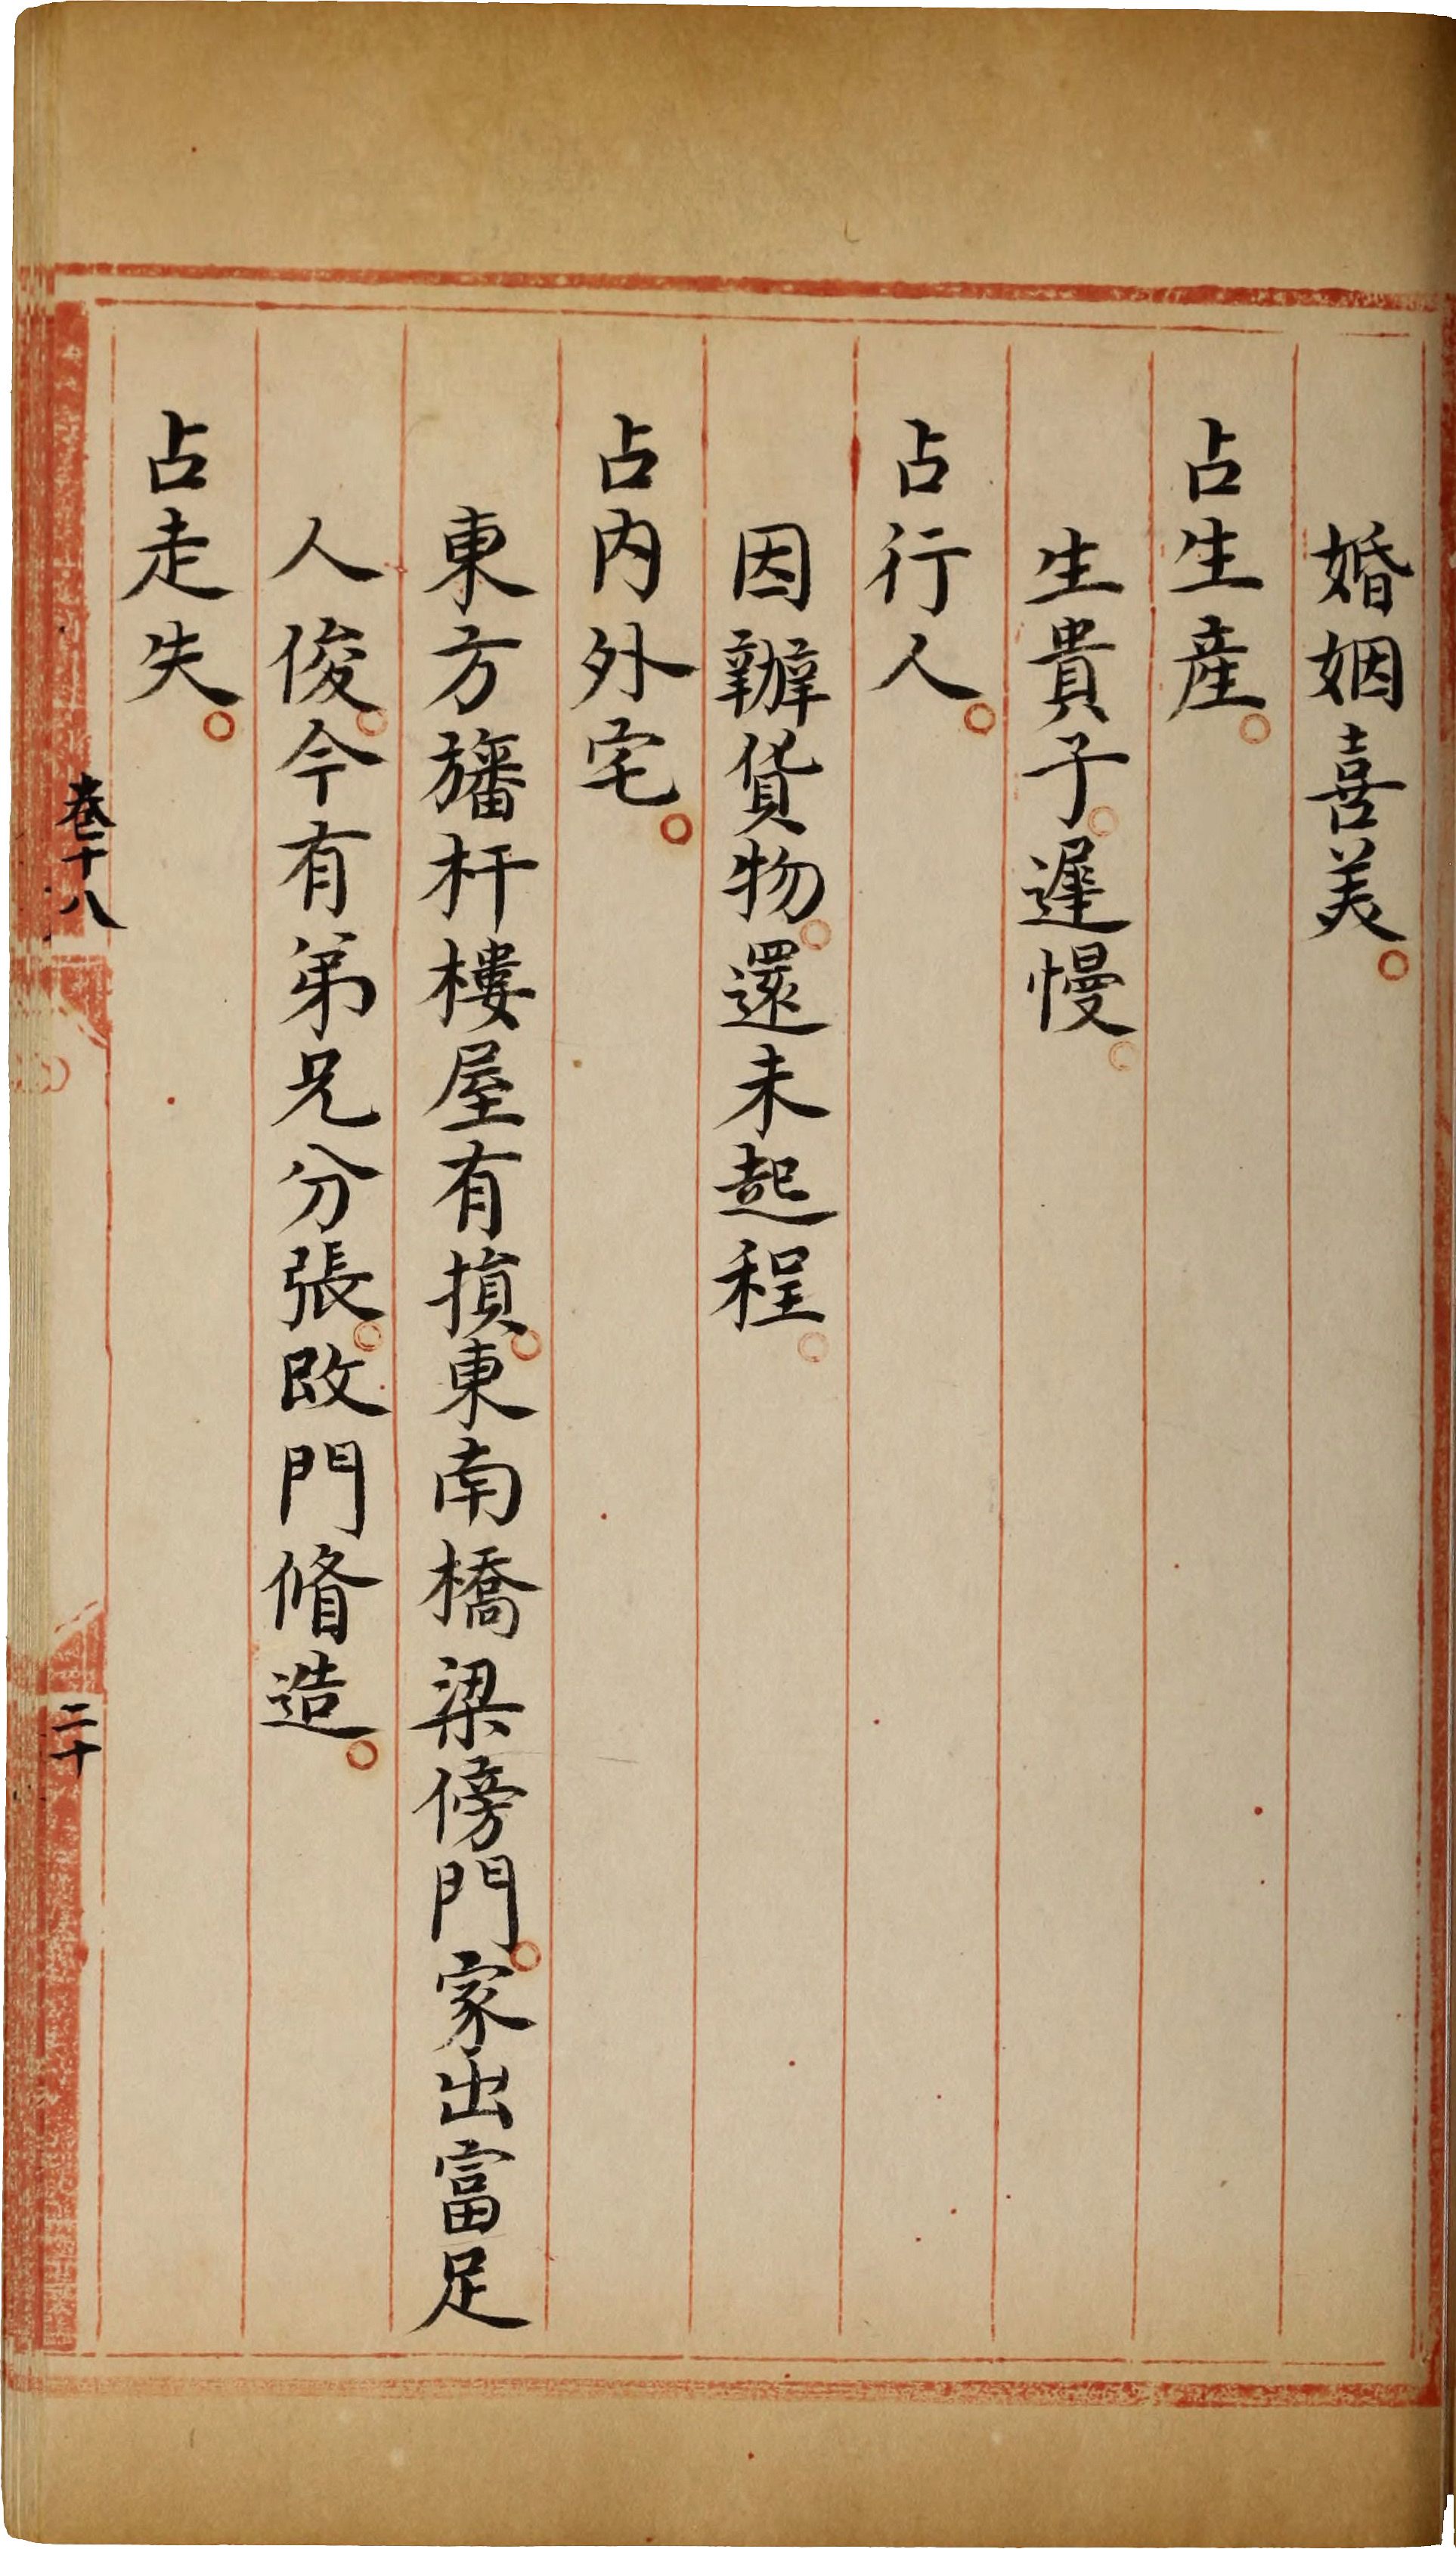 婚姻喜美。
占生產。
生貴子。遲慢。
占行人。
因辦貨物。還未起程。
占内外宅。
東方旛杆樓屋有損。東南橋梁傍門。家出富足
人俊。今有弟兄分張。改門脩造。
占走失。
卷十八
二十